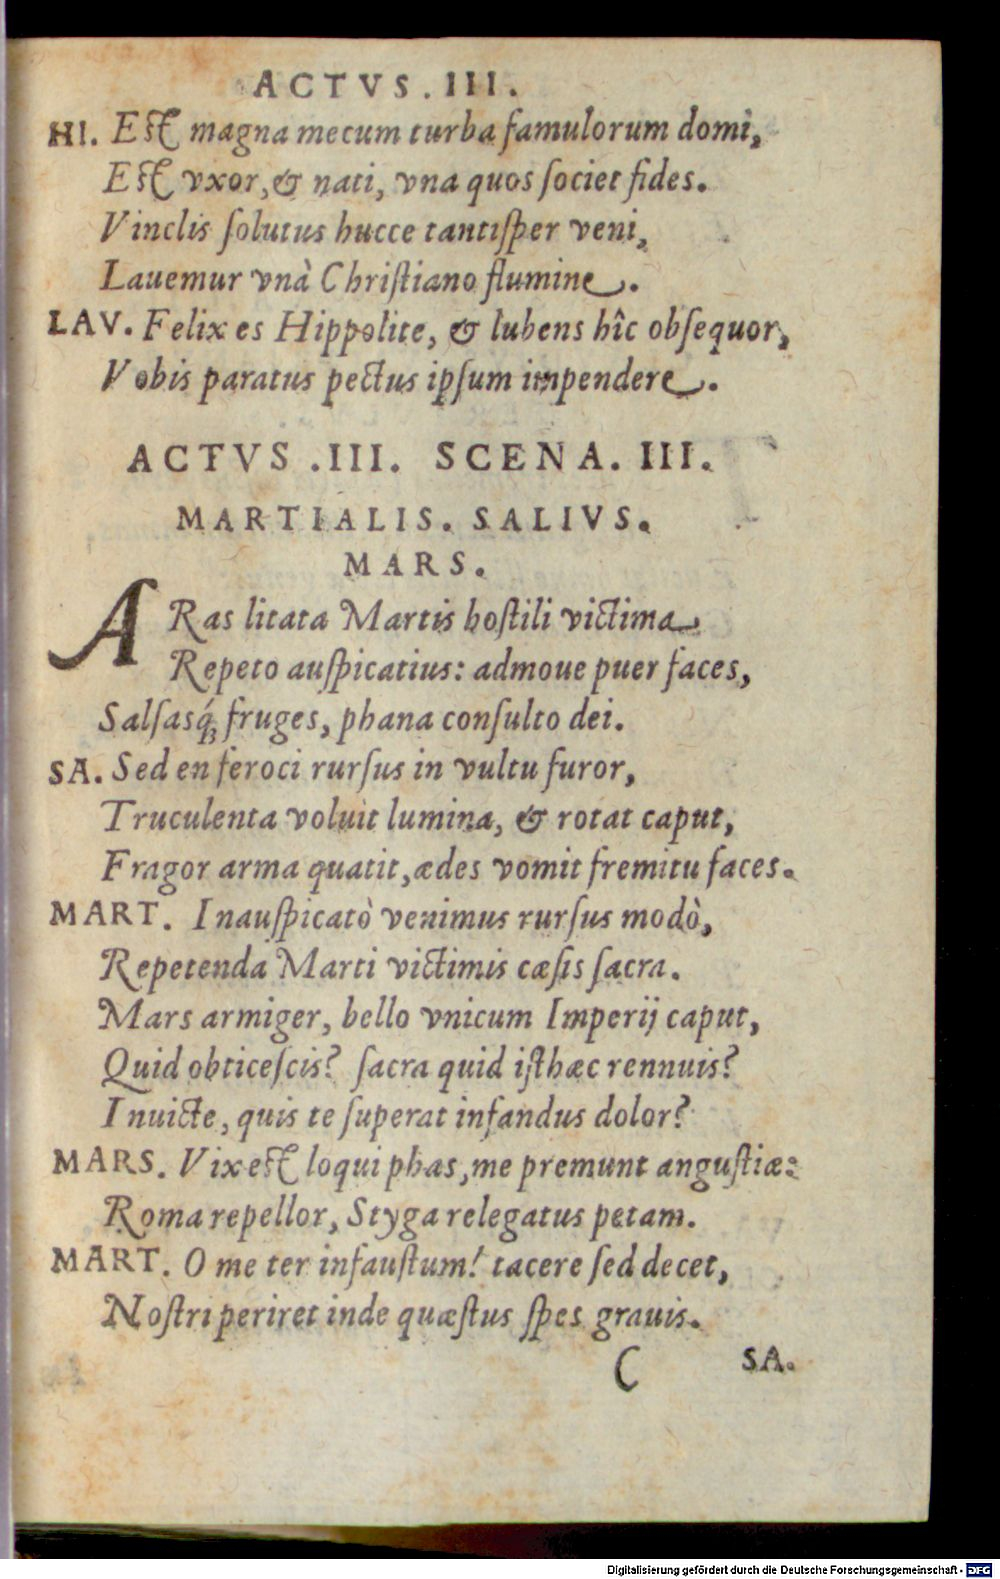 ACTVS.III.
HI. Est magna mecum turba famulorum domi,
Est vxor, & nati, vna quos societ fides.
Vinclis solutus hucce tantisper veni,
Lauemur vnà Christiano flumine.
LAV. Felix es Hippolite, & lubens hîc obsequor,
Vobis paratus pectus ipsum impendere.
ACTVS .III. SCENA. III.
MARTIALIS. SALIVS.
MARS.
ARas litata Martis hostili victima
Repeto auspicatius: admoue puer faces,
Salsasq́; fruges, phana consulto dei.
SA. Sed en feroci rursus in vultu furor,
Truculenta voluit lumina, & rotat caput,
Fragor arma quatit, ædes vomit fremitu faces.
MART. Inauspicatò venimus rursus modò,
Repetenda Marti victimis cæsis sacra.
Mars armiger, bello vnicum Imperij caput,
Quid obticescis? sacra quid isthæc rennuis?
Inuicte, quis te superat infandus dolor?
MARS. Vix est loqui phas, me premunt angustiæ:
Roma repellor, Styga relegatus petam.
MART. O me ter infaustum! tacere sed decet,
Nostri periret inde quæstus spes grauis.
C SA.
Digitalisierung gefördert durch die Deutsche Forschungsgemeinschaft - DFG